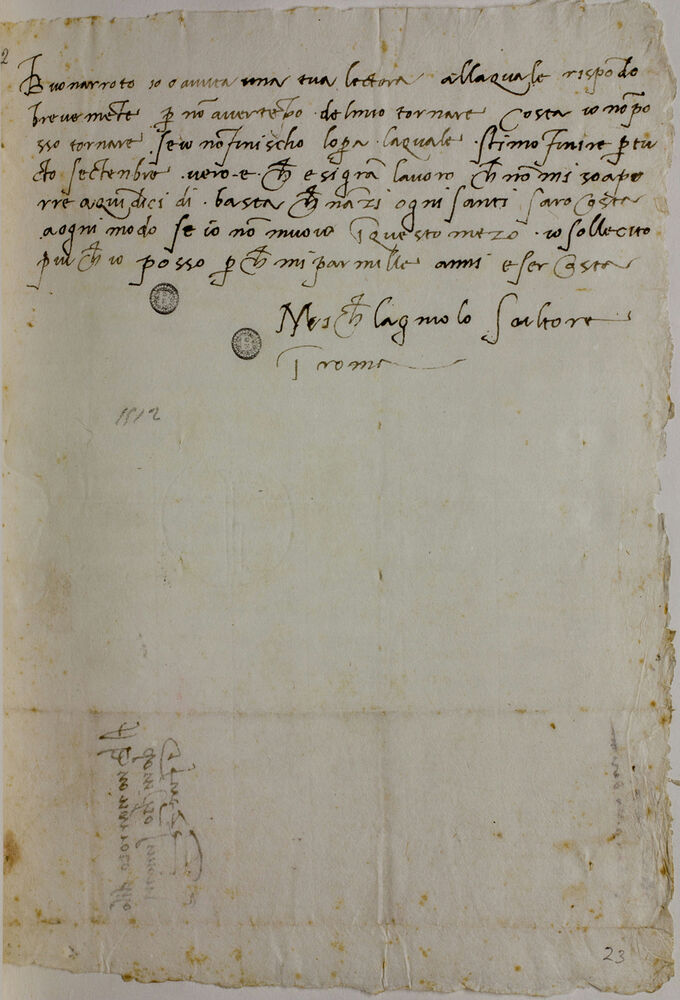 2
Buonarroto io o avuta una tua lectora allaquale rispōdo
brevemēte p̄ nō aver tēpo del mio tornare costa io nō po
sso tornare se io nō finischo lop̄a laquale stimo finire p̄ tu
cto sectenbre vero e ch̄ e sigrā lavoro ch̄ nō mi so apo
rre a quīdici di basta ch̄ nāzi ogni santi saro costa
a ogni modo se io nō muoio ī questo mezo io sollecito
piu ch̄ io posso p̄ ch̄ mi par mille anni esser costa
Mich̄lagniolo scultore
ī roma
1512
23